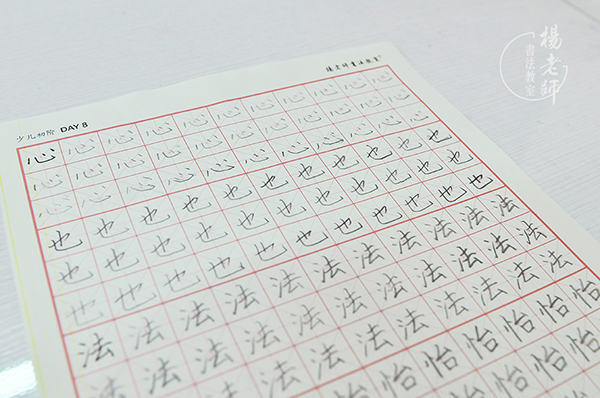 少儿初阶 DAY 8
楊老師書法教室
楊老師
書法教室
心心心心心心心心心心心
心心心心心心心心心心心
心心心心心心心心心心心
也也也也也也也也也也也
也也也也也也也也也也也
也也也也也也也也也也也
法法法法法法法法法法法
法法法法法法法法法法法
法法法法法法法法法
怡怡怡怡怡怡
怡怡怡怡